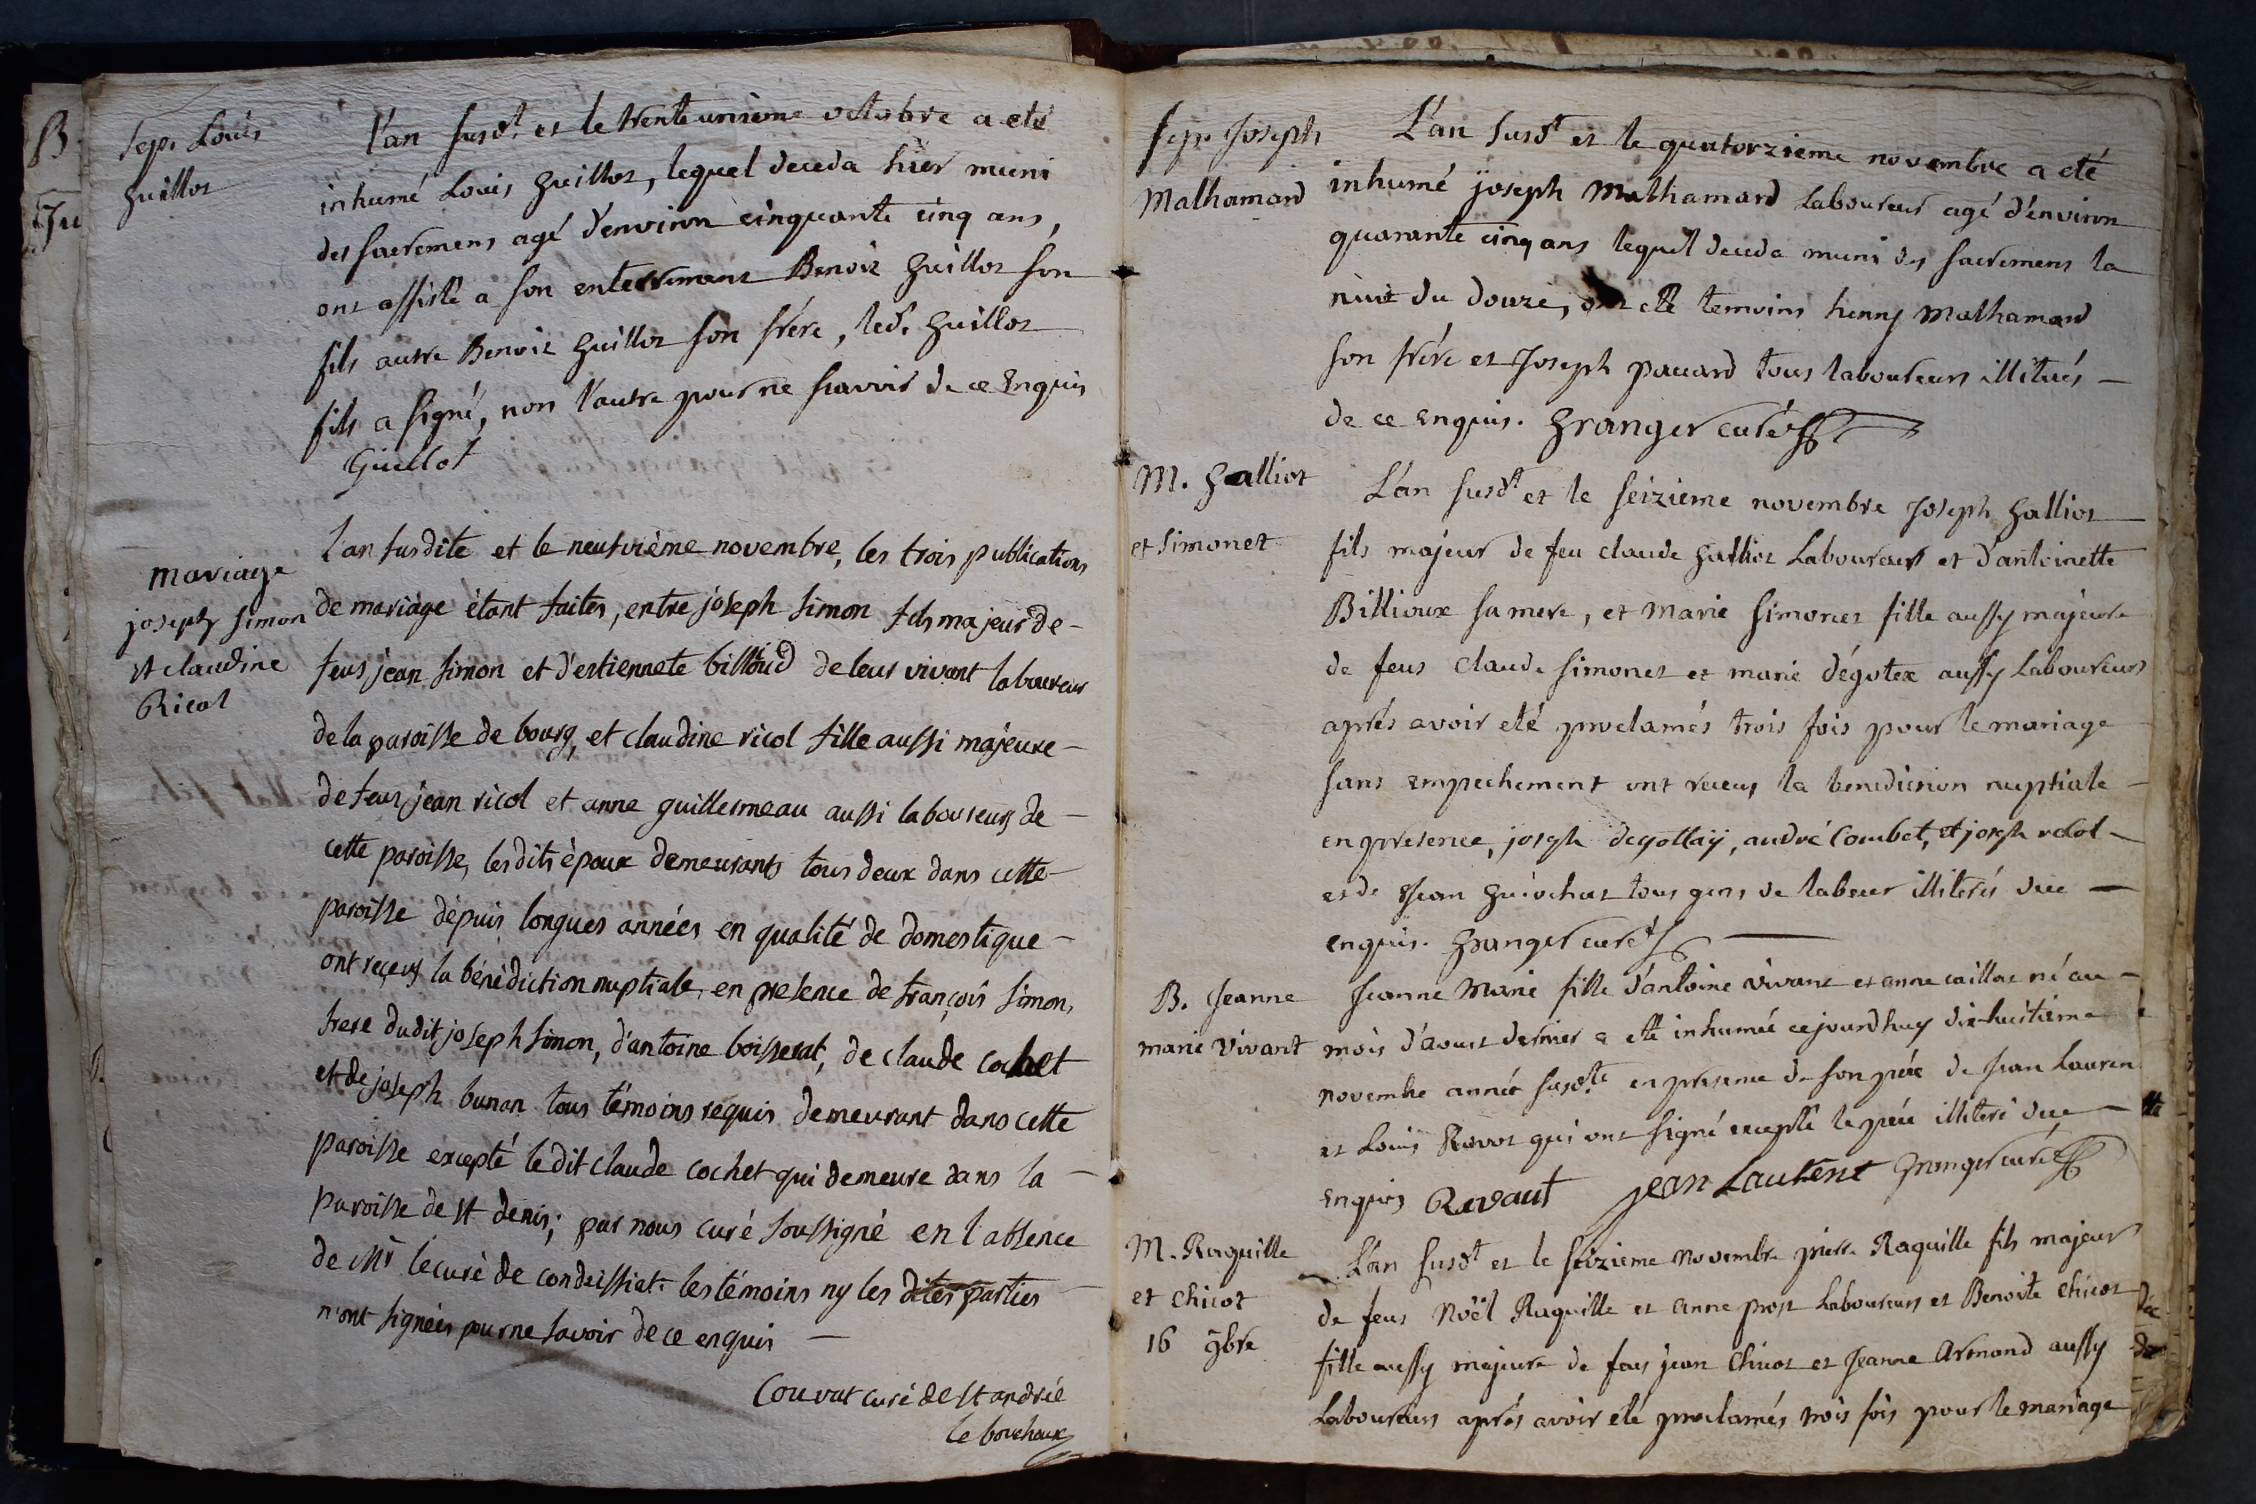 B.
Ju
Sep. Louis
Guillot
L'an susdt. et le trente unième octobre a eté
inhumé Louis Guillot, lequel deceda hier muni
des sacremens agé d'environ cinquante cinq ans,
ont assisté a son enterrement Benoit Guillot son
fils autre Benoit Guillot son frére, led. Guillot
fils a signé, non l'autre pour ne scavoir de ce Enquis
Guillot
Mariage
joseph Simon
et claudine
Ricol
L'an susdite et le neufvième novembre, les trois publications
de mariage étant faites, entre joseph Simon fils majeur de
feus jean Simon et d'estiennete billoud de leur vivant laboureur
de la paroisse de bourg, et claudine ricol fille aussi majeure
de feus jean ricol et anne guillermeau aussi laboureurs de
cette paroisse, les dits époux demeurants tous deux dans cette
paroisse dépuis longues années en qualité de domestique
ont reçeus la bénédiction nuptiale, en présence de françois Simon,
frere dudit joseph Simon, d'antoine boisserat, de claude cochet
et de joseph bunan tous témoins requis demeurant dans cette
paroisse excepté le dit claude cochet qui demeure dans la
paroisse de st denis; par nous curé soussigné en l'absence
de Mr le curé de condeissiat. les témoins ny les dites parties
n'ont signées pour ne savoir de ce enquis
Couvat curé de st andrée
le bouchoux
sep. Joseph
Malhamard
L'an susdt et le quatorzieme novembre a eté
inhumé joseph Malhamard Laboureur agé d'environ
quarante cinq ans lequel deceda muni des sacremens la
nuit du douze, ont eté temoins henry Malhamard
son frére et Joseph pauard tous laboureurs illitrés
de ce enquis. Granger curé
M. Galliot
et Simonet
L'an susdt et le seizieme novembre Joseph Galliot
fils majeur de feu claude Galliot Laboureur et d'antoinette
Billioux sa mere, et Marie Simonet fille aussy majeure
de feus claude Simonet et marie dégotex aussy Laboureurs
aprés avoir eté proclamés trois fois pour le mariage
sans empechement ont receus la benediction nuptiale
en presence, joseph degottaÿ, andré Combet, et joseph
et de Jean Guiochet tous gens de labeur illiterés due
enquis. Granger curé
B. Jeanne
marie Vivant
Jeanne Marie fille d'antoine Vivant et anne caillat né au
mois d'aoust dernier a eté inhumée cejourdhuy dix-huitiéme
novembre année susdte en presence de son pére de Jean Lauren
et Louis Ravot qui ont signé excepté le pére illiteré due
enquis Revaut jean Laurent Granger curé
M. Raquille
et Chicot
16 9bre
L'an susdt et le seizieme novembre pierre Raquille fils majeur
de feus Noël Raquille et Anne prost Laboureurs et Benoite Chicot
fille aussy majeure de feus jean Chicot et Jeanne Armand aussy
Laboureurs aprés avoir eté proclamés trois fois pour le mariage